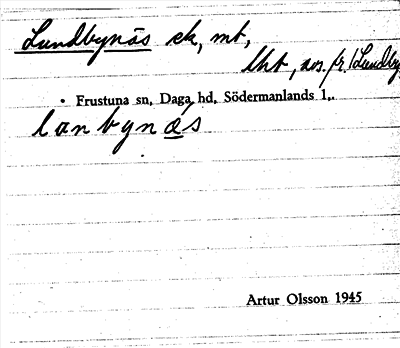 Lundbynäs ek, mt,
tht, avs. fr. Lundby
Frustuna sn, Daga hd, Södermanlands l.,
lanbynäs
Artur Olsson 1945